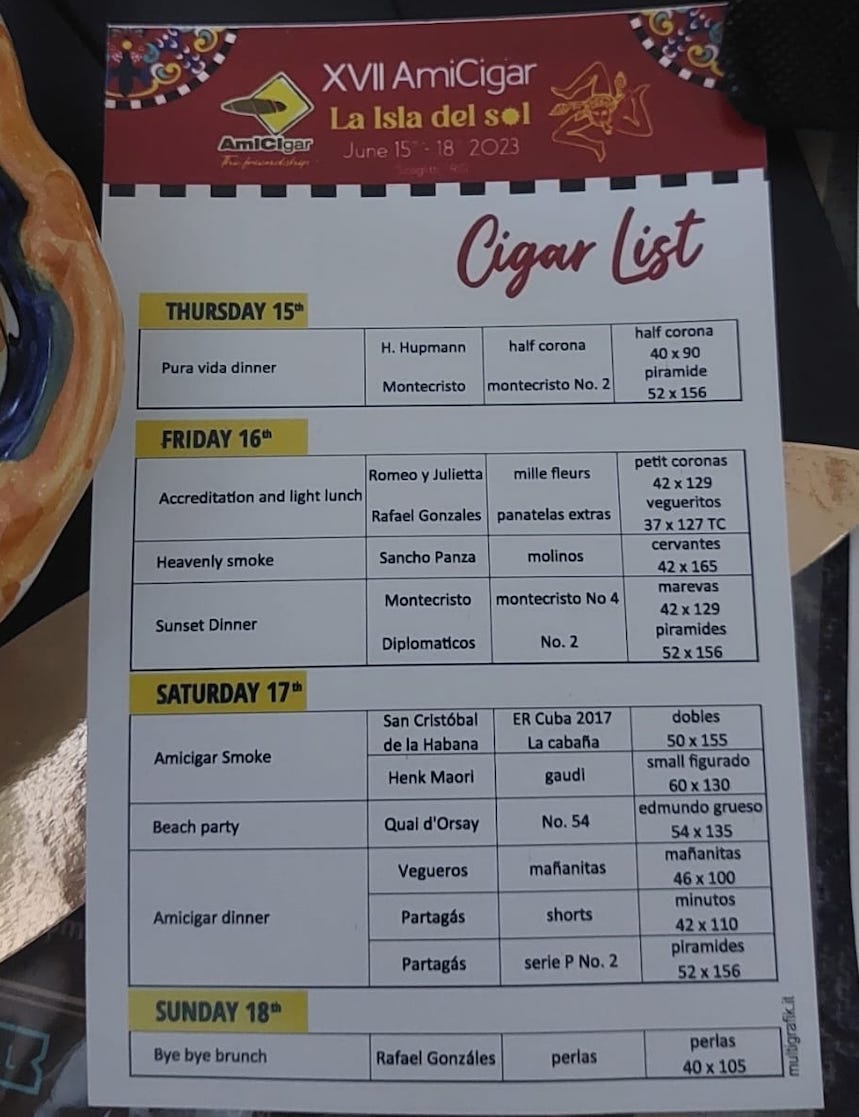 XVII AmiCigar
La Isla del sol
June 15th - 18 2023
AmiCigar
Cigar List
THURSDAY 15th
Pura vida dinner
H. Hupmann
half corona
half corona
40 x 90
Montecristo
montecristo No. 2
piramide
52 x 156
FRIDAY 16th
Accreditation and light lunch
Romeo y Julietta
mille fleurs
petit coronas
42 x 129
Rafael Gonzales
panatelas extras
vegueritos
37 x 127 TC
Heavenly smoke
Sancho Panza
molinos
cervantes
42 x 165
Sunset Dinner
Montecristo
montecristo No 4
marevas
42 x 129
Diplomaticos
No. 2
piramides
52 x 156
SATURDAY 17th
Amicigar Smoke
San Cristóbal
de la Habana
ER Cuba 2017
La cabaña
dobles
50 x 155
Henk Maori
gaudi
small figurado
60 x 130
Beach party
Quai d'Orsay
No. 54
edmundo grueso
54 x 135
Amicigar dinner
Vegueros
mañanitas
mañanitas
46 x 100
Partagás
shorts
minutos
42 x 110
Partagás
serie P No. 2
piramides
52 x 156
SUNDAY 18th
Bye bye brunch
Rafael Gonzáles
perlas
perlas
40 x 105
multigrafik.it